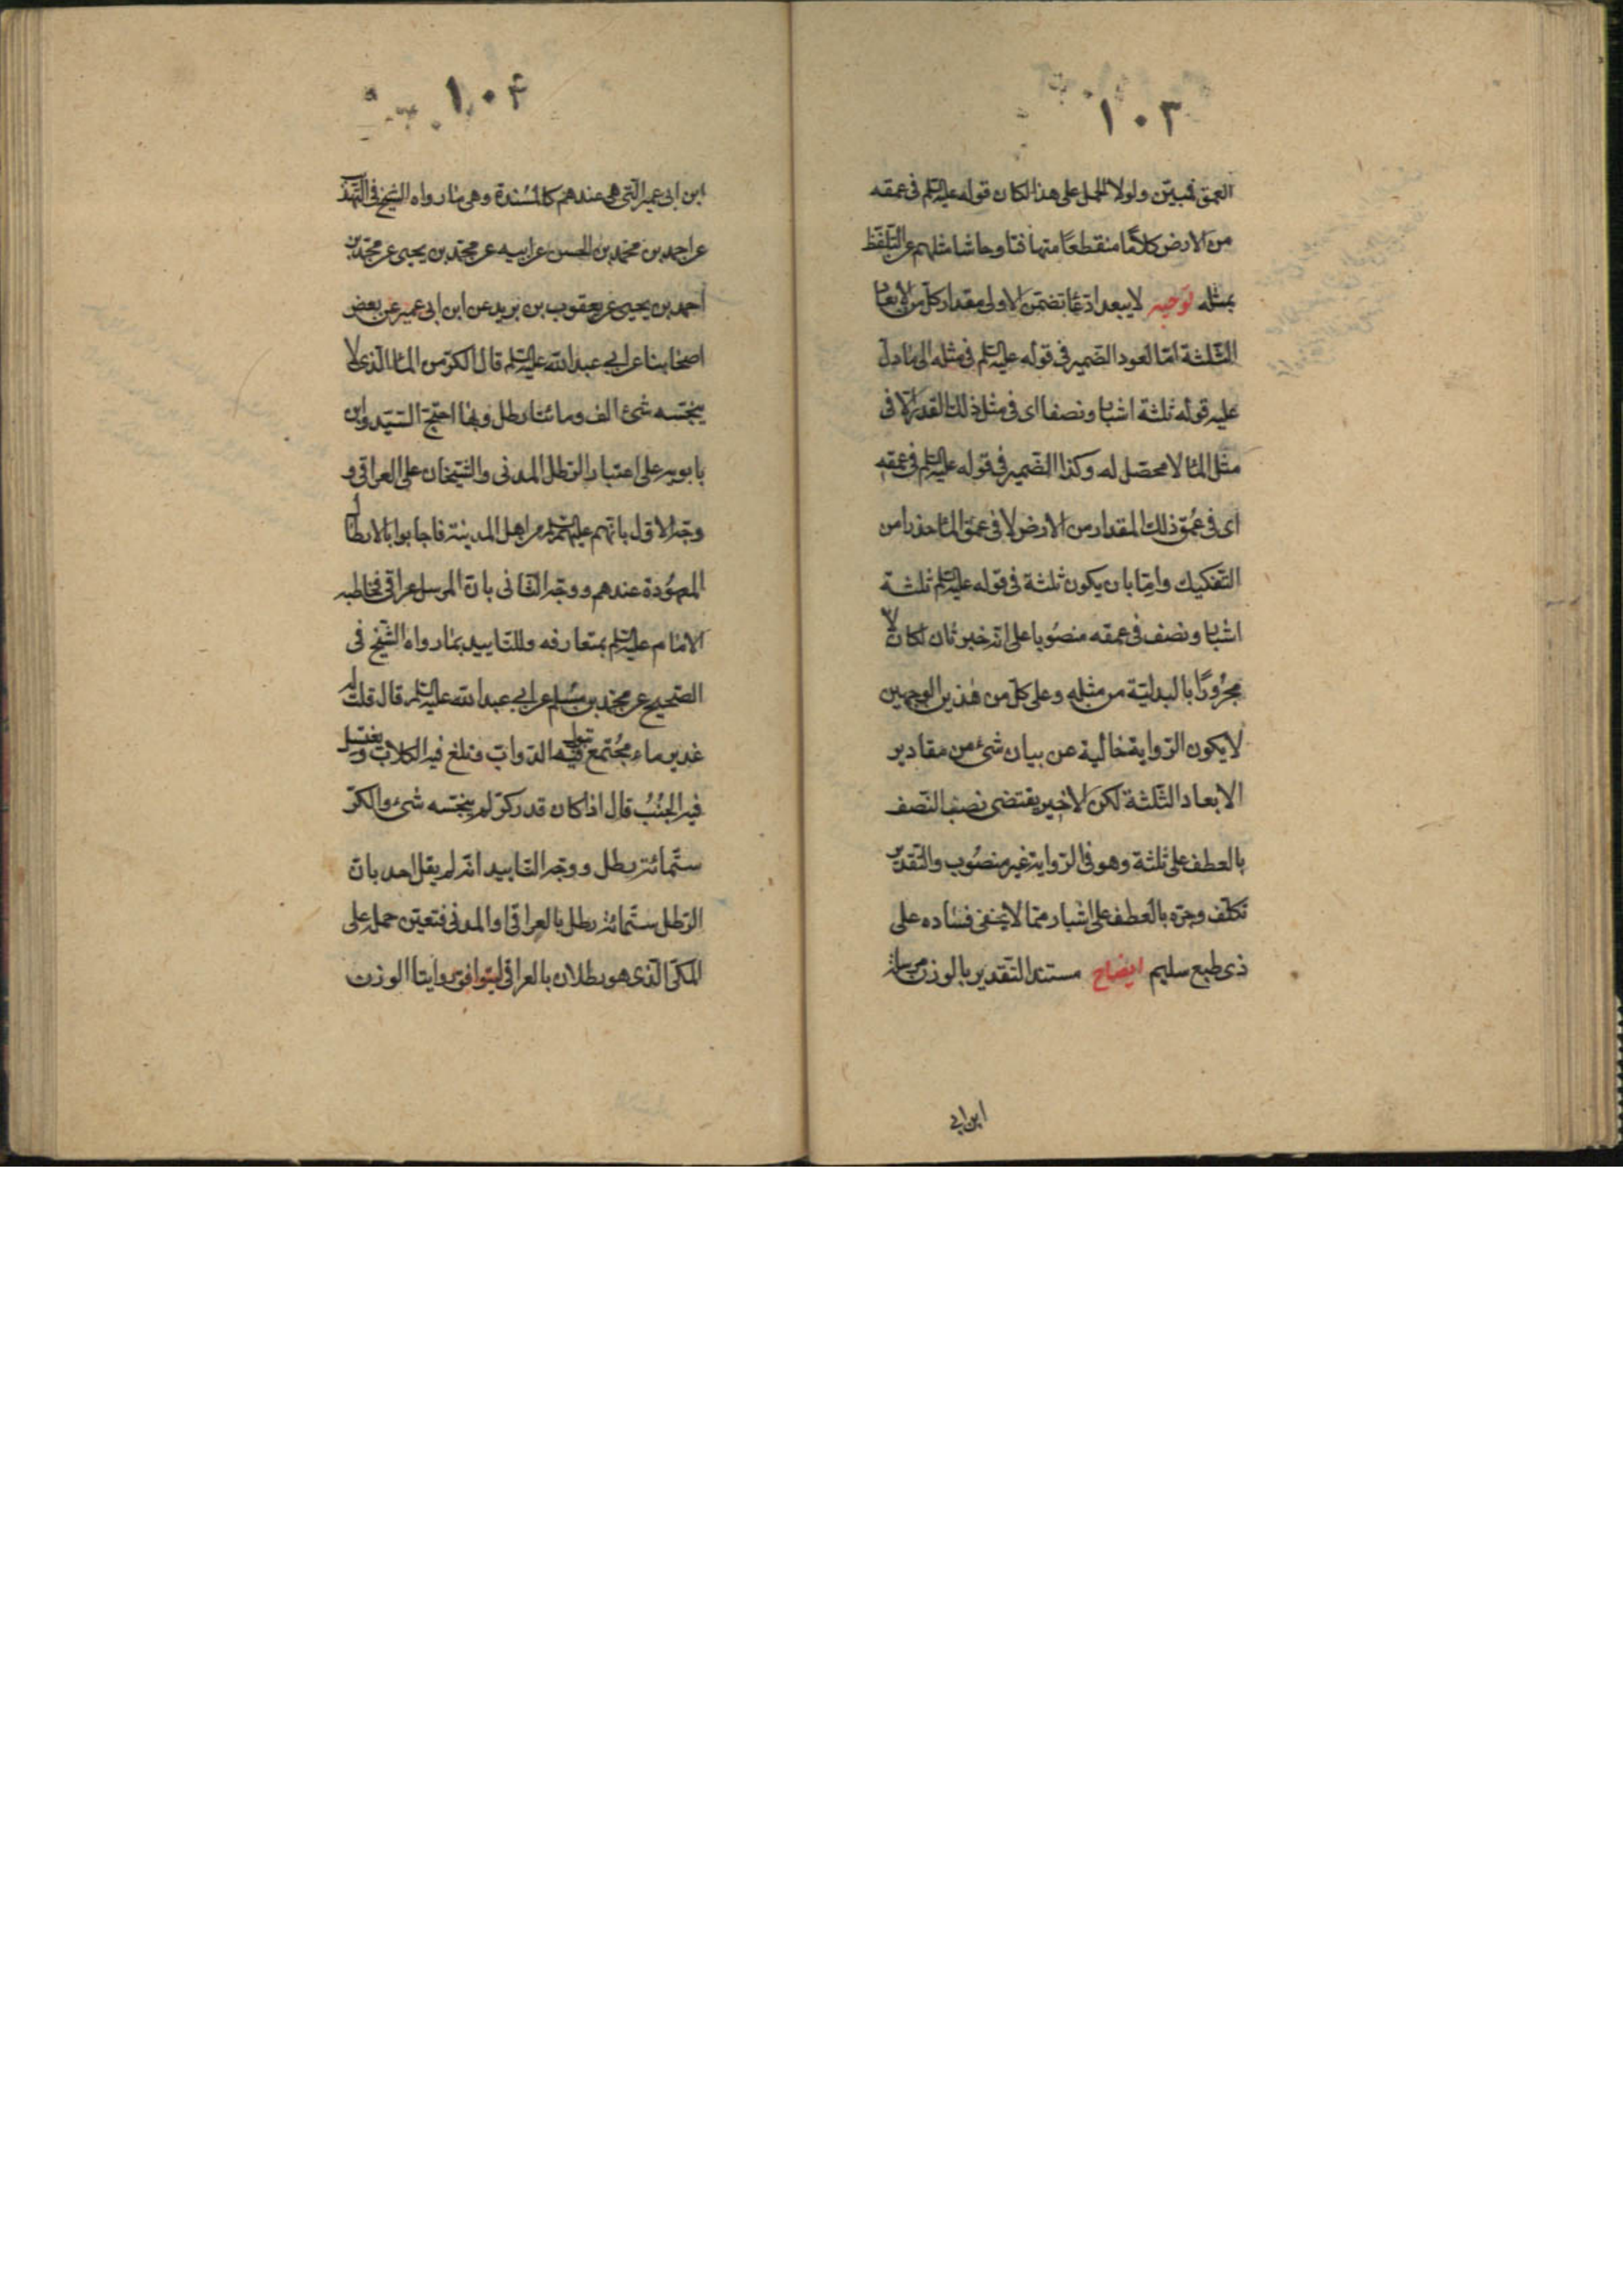 ١٠٣
العمق فبين ولولا الحمل على هذا لكان قوله عليه السلم فى عمقه
من الارض كلامًا منقطعًا متهافتا وحاشا مثلهم عن التلفظ
بمثله توجيه لا يبعد ادعا تضمن الاولى مقدار كل من الابعاد
الثلثة اما لعود الضمير فى قوله عليه السلم فى مثله الى ما دل
عليه قوله ثلثة اشبار ونصفا اى فى مثل ذلك القدر لا فى
مثل الماء اذ لا محصل له وكذا الضمير فى قوله عليه السلم فى عمقه
اى فى عُمق ذلك المقدار من الارض لا فى عمق الماء حذرا من
التفكيك واما بان يكون ثلثة فى قوله عليه السلم ثلثة
اشبار ونصف فى عمقه منصُوبا على انه خبر ثان لكان لا
مجرُورًا بالبدلية من مثله وعلى كل من هذين الوجهين
لا يكون الرواية خالية عن بيان شئ من مقادير
الابعاد الثلثة لكن الاخير يقتضى نصب النصف
بالعطف على ثلثة وهو فى الرواية غير منصُوب والتقدير
تكلف وجره بالعطف على اشبار مما لا يخفى فساده على
ذى طبع سليم ايضاح مستند التقدير بالوزن مرسلة
ابن ابى
١٠۴
ابن ابى عمير التى هى عندهم كالمسُندة وهى ما رواه الشيخ فى التهذ
عن احمد بن محمد بن الحسن عن ابيه عن محمد بن يحيى عن محمد بن
احمد بن يحيى عن يعقوب بن يزيد عن ابن ابى عمير عن بعض
اصحابنا عن ابى عبد الله عليه السلم قال الكر من الماء الذى لا
ينجسه شئ الف ومائتا رطل وبها احتج السيد وابن
بابويه على اعتبار الرطل المدنى والشيخان على العراقى و
وجه الاول بانهم عليهم السلم من اهل المدينة فاجابوا بالارطال
المعهُودة عندهم ووجه الثانى بان المرسل عراقى فخاطبه
الامام عليه السلم بمتعارفه وللتاييد بما رواه الشيخ فى
الصحيح عن محمد بن مسُلم عن ابى عبد الله عليه السلم قال قلت له
غدير ماء مجُتمع تبول فيه الدواب وتلغ فيه الكلاب ويغتسل
فيه الجنُبُ قال اذا كان قدر كر لم ينجسه شئ والكر
ستمائة رطل ووجه التاييد انه لم يقل احد بان
الرطل ستمائة رطل بالعراقى او المدنى فتعين حمله على
المكى الذى هو رطلان بالعراقى ليتوافق روايتا الوزن